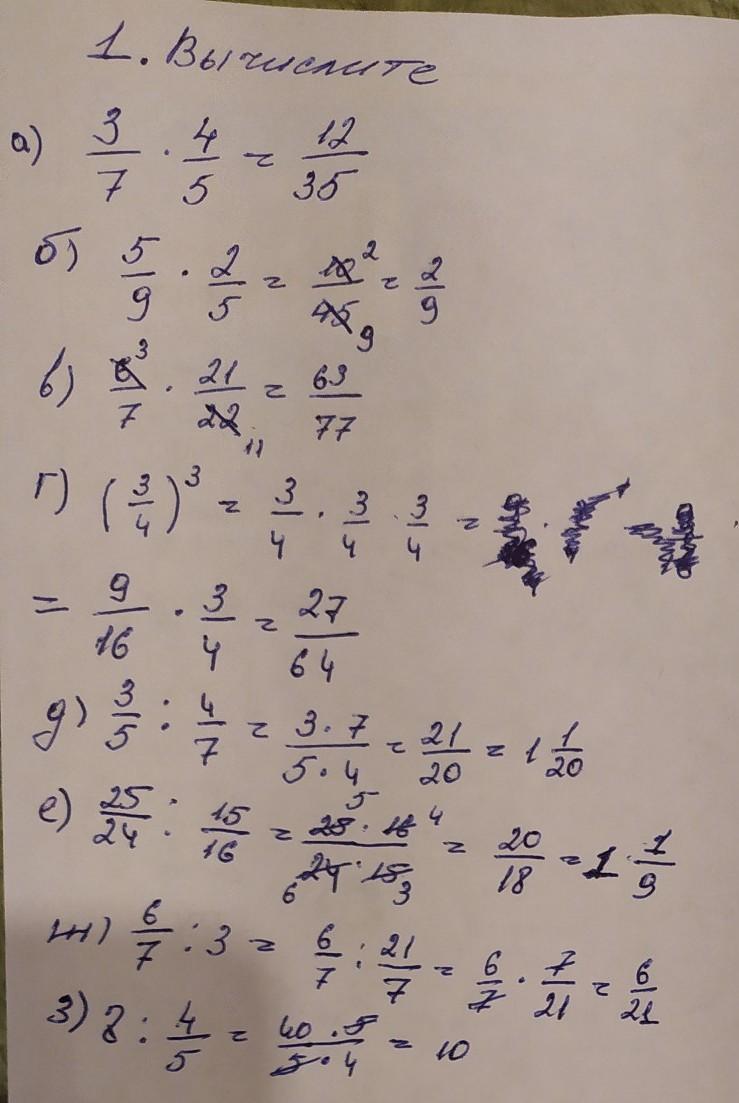 1. Вычислите
а) 3/7 · 4/5 = 12/35
б) 5/9 · 2/5 = 10 2/45 9 = 2/9
в) 6 3/7 · 21/22 11 = 63/77
г) (3/4)³ = 3/4 · 3/4 · 3/4 =
= 9/16 · 3/4 = 27/64
д) 3/5 : 4/7 = 3·7/5·4 = 21/20 = 1 1/20
е) 25/24 : 15/16 = 25 5 · 16 4/24 6 · 15 3 = 20/18 = 1 1/9
ж) 6/7 : 3 = 6/7 : 21/7 = 6/7 · 7/21 = 6/21
з) 8 : 4/5 = 40·5/5·4 = 10